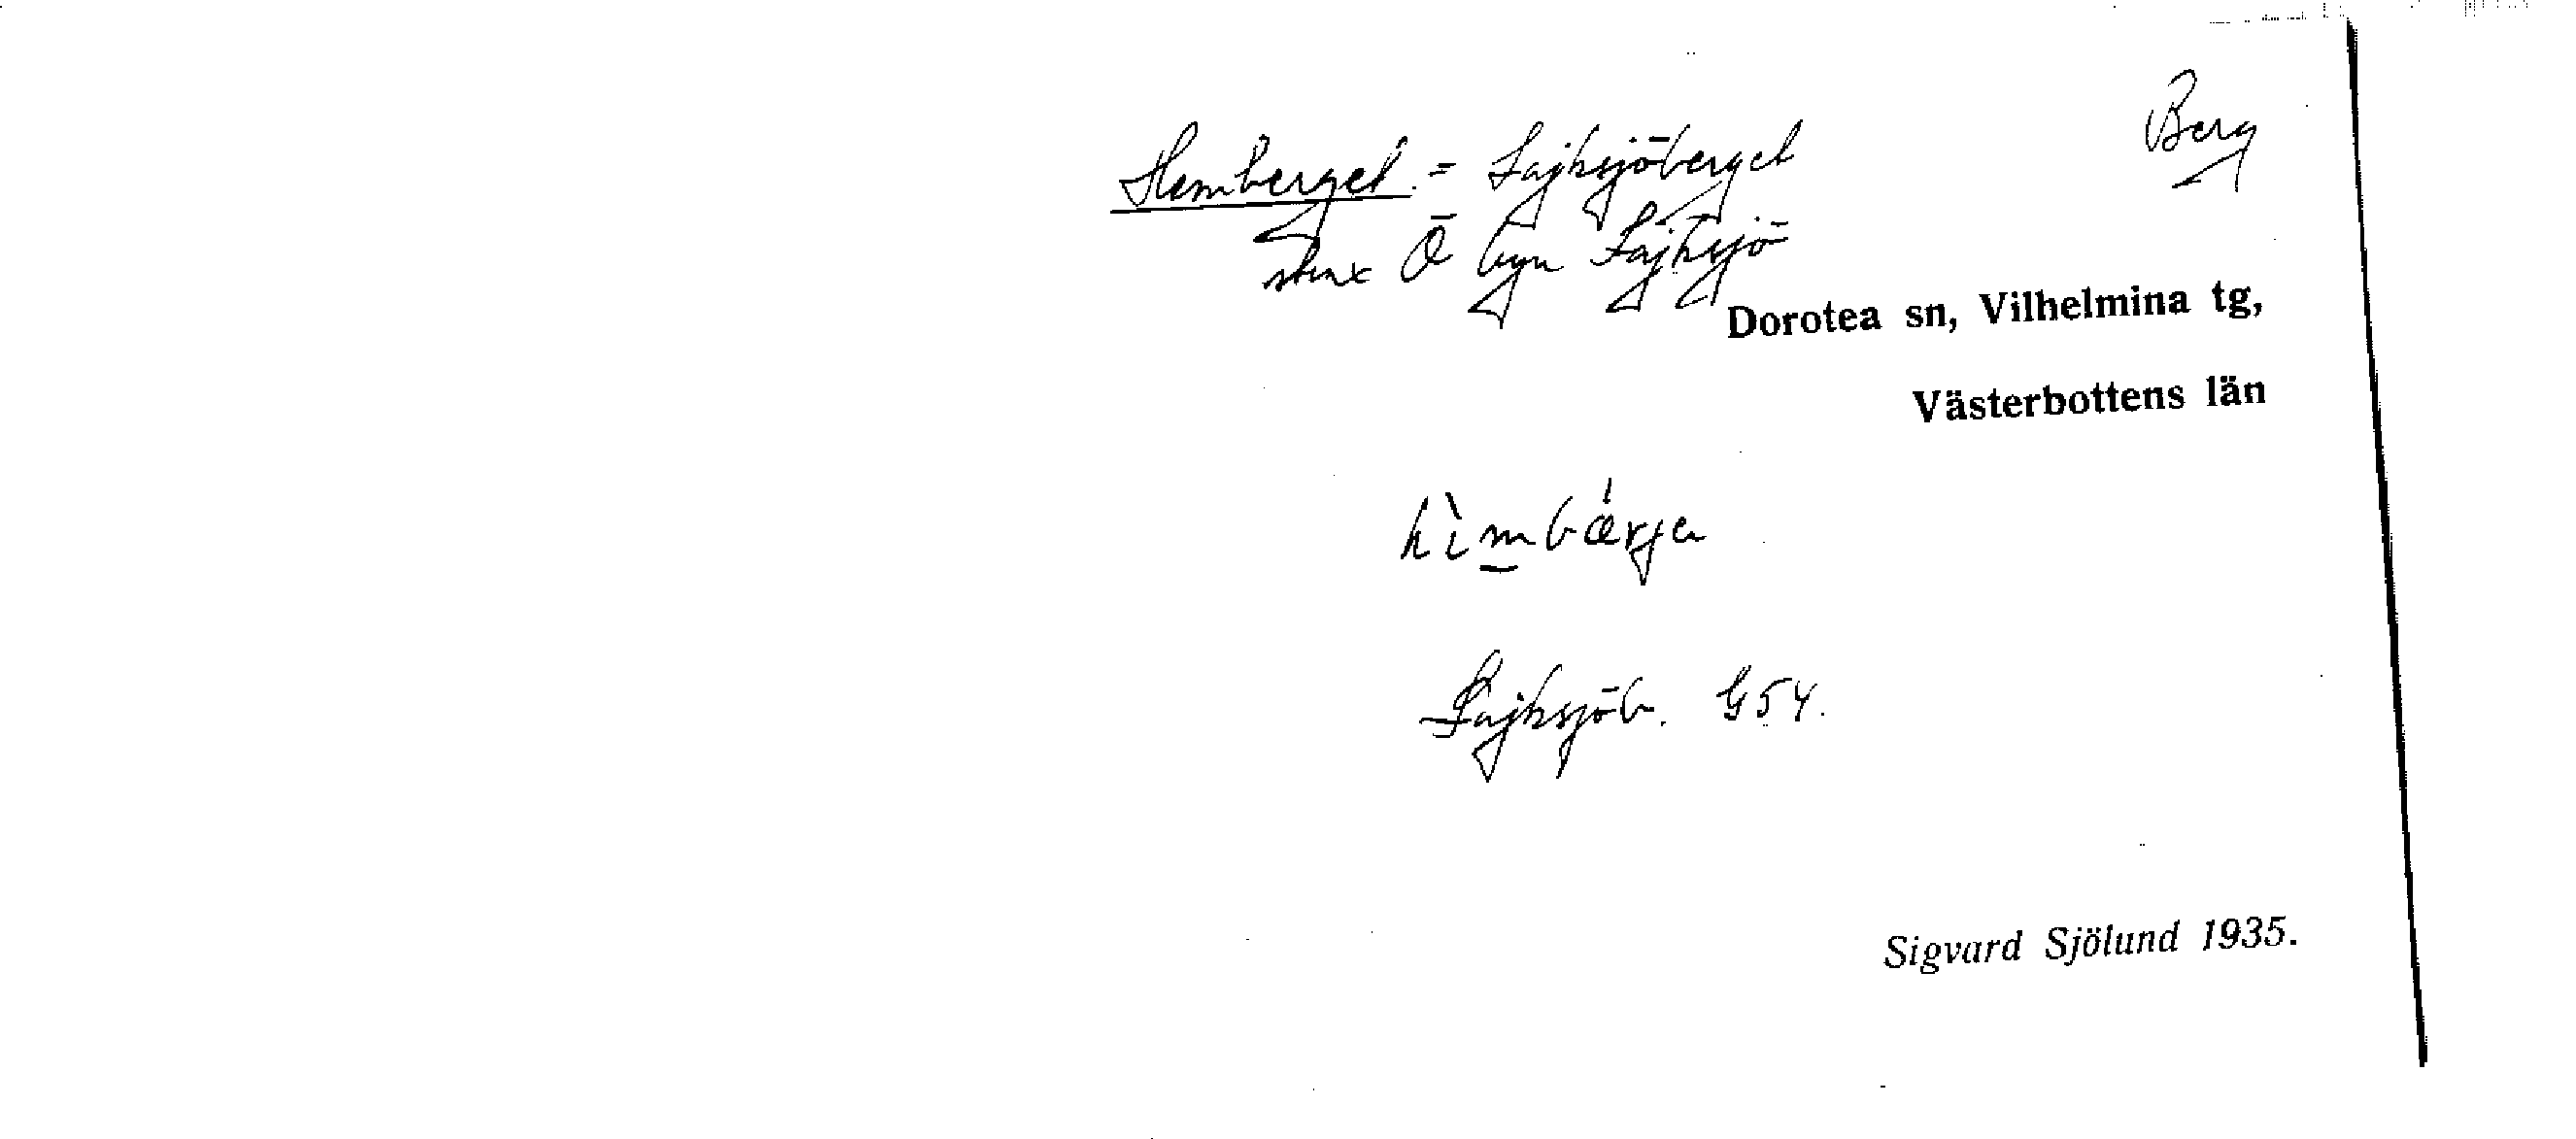 Berg
Hemberget = Lajksjöberget
strax Ö byn Lajksjö
Dorotea sn, Vilhelmina tg,
Västerbottens län
hìmbá̈rjen
Lajksjöb. G54.
Sigvard Sjölund 1935.